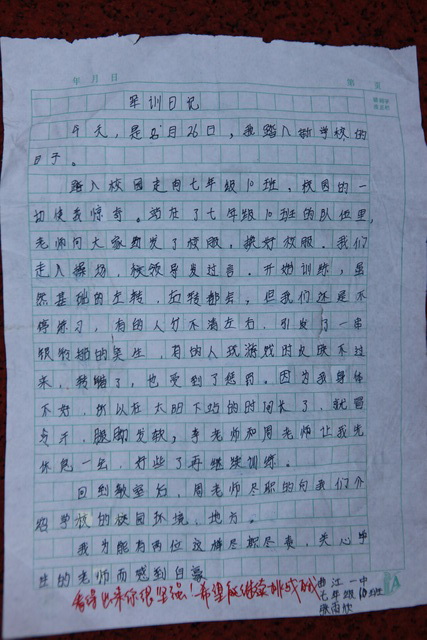 年 月 日
第 页
军训日记
今天，是8月26日，我踏入新学校的
日子。
踏入校园走向七年级10班，校园的一
切使我惊奇。站在了七年级10班的队伍里，
老师向大家颁发了校服，换好校服。我们
走入操场，校领导发过言。开始训练，虽
然基础的左转，右转都会，但我们还是不
停练习，有的人分不清左右，引发了一串
银铃般的笑声，有的人玩游戏时反应不过
来，转错了，也受到了惩罚。因为我身体
不好，所以在太阳下站的时间长了，就冒
虚汗，腿脚发软，李老师和周老师让我先
休息一会，好些了再继续训练。
回到教室后，周老师尽职的向我们介
绍学校的校园环境、地方。
我为能有两位这样尽职尽责，关心学
生的老师而感到自豪
看得出来你很坚强！希望你继续挑战
曲江一中
七年级10班